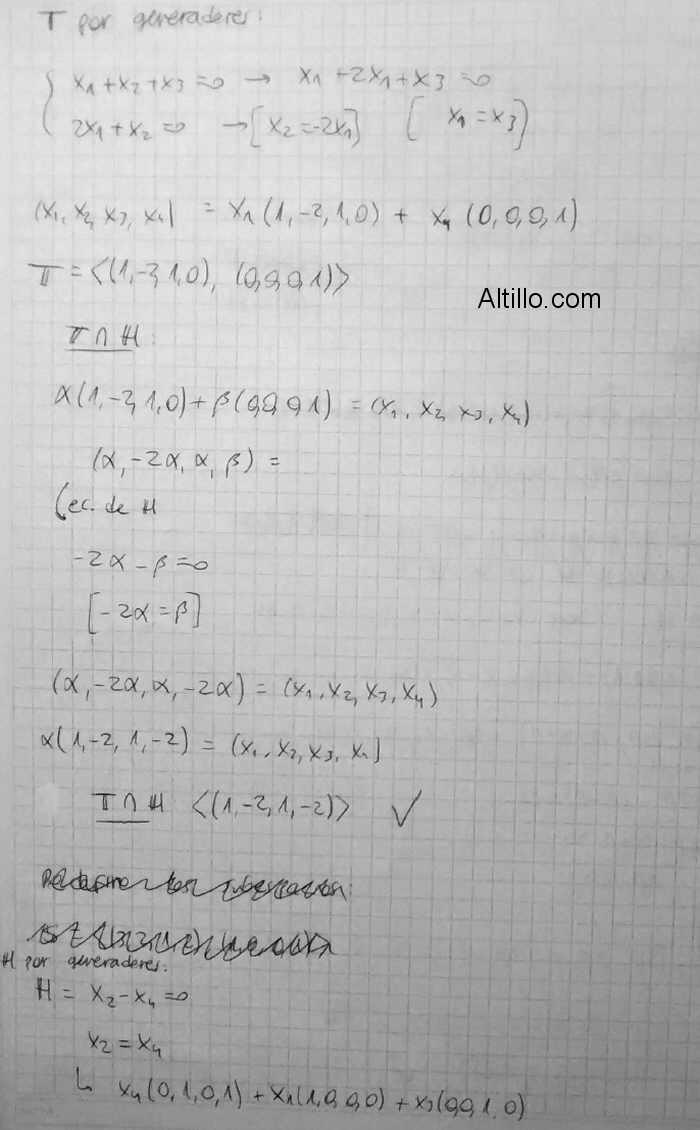 T por generadores:
{ x1 + x2 + x3 = 0 → x1 + 2x1 + x3 = 0
2x1 + x2 = 0 → [x2 = -2x1] [x1 = x3]
(x1, x2, x3, x4) = x1 (1, -2, 1, 0) + x4 (0, 0, 0, 1)
T = <(1, -2, 1, 0), (0, 0, 0, 1)>
Altillo.com
T ∩ H:
α(1, -2, 1, 0) + β(0, 0, 0, 1) = (x1, x2, x3, x4)
(α, -2α, α, β) =
(ec. de H
-2α - β = 0
[-2α = β]
(α, -2α, α, -2α) = (x1, x2, x3, x4)
α(1, -2, 1, -2) = (x1, x2, x3, x4)
T ∩ H <(1, -2, 1, -2)> ✓
H por generadores:
H = x2 - x4 = 0
x2 = x4
↳ x4 (0, 1, 0, 1) + x1 (1, 0, 0, 0) + x3 (0, 0, 1, 0)